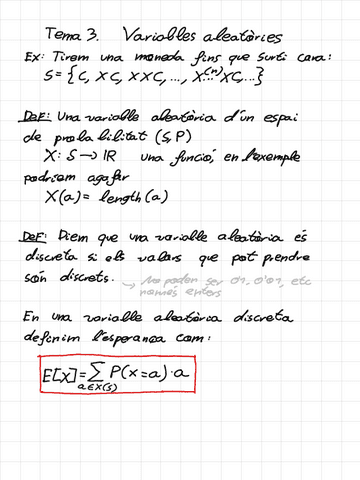 Tema 3. Variables aleatòries
Ex: Tirem una moneda fins que surti cara:
S = { C, XC, XXC, ..., X.(n).XC, ... }
DeF: Una variable aleatòria d'un espai
de probabilitat (S, P)
X: S → IR una funció, en l'exemple
podríem agafar
X(a) = length(a)
DeF: Diem que una variable aleatòria és
discreta si els valors que pot prendre
són discrets. → No poden ser 0'1, 0'01, etc
només enters
En una variable aleatòria discreta
definim l'esperança com:
E[X] = ∑ P(X=a)·a
a∈X(S)